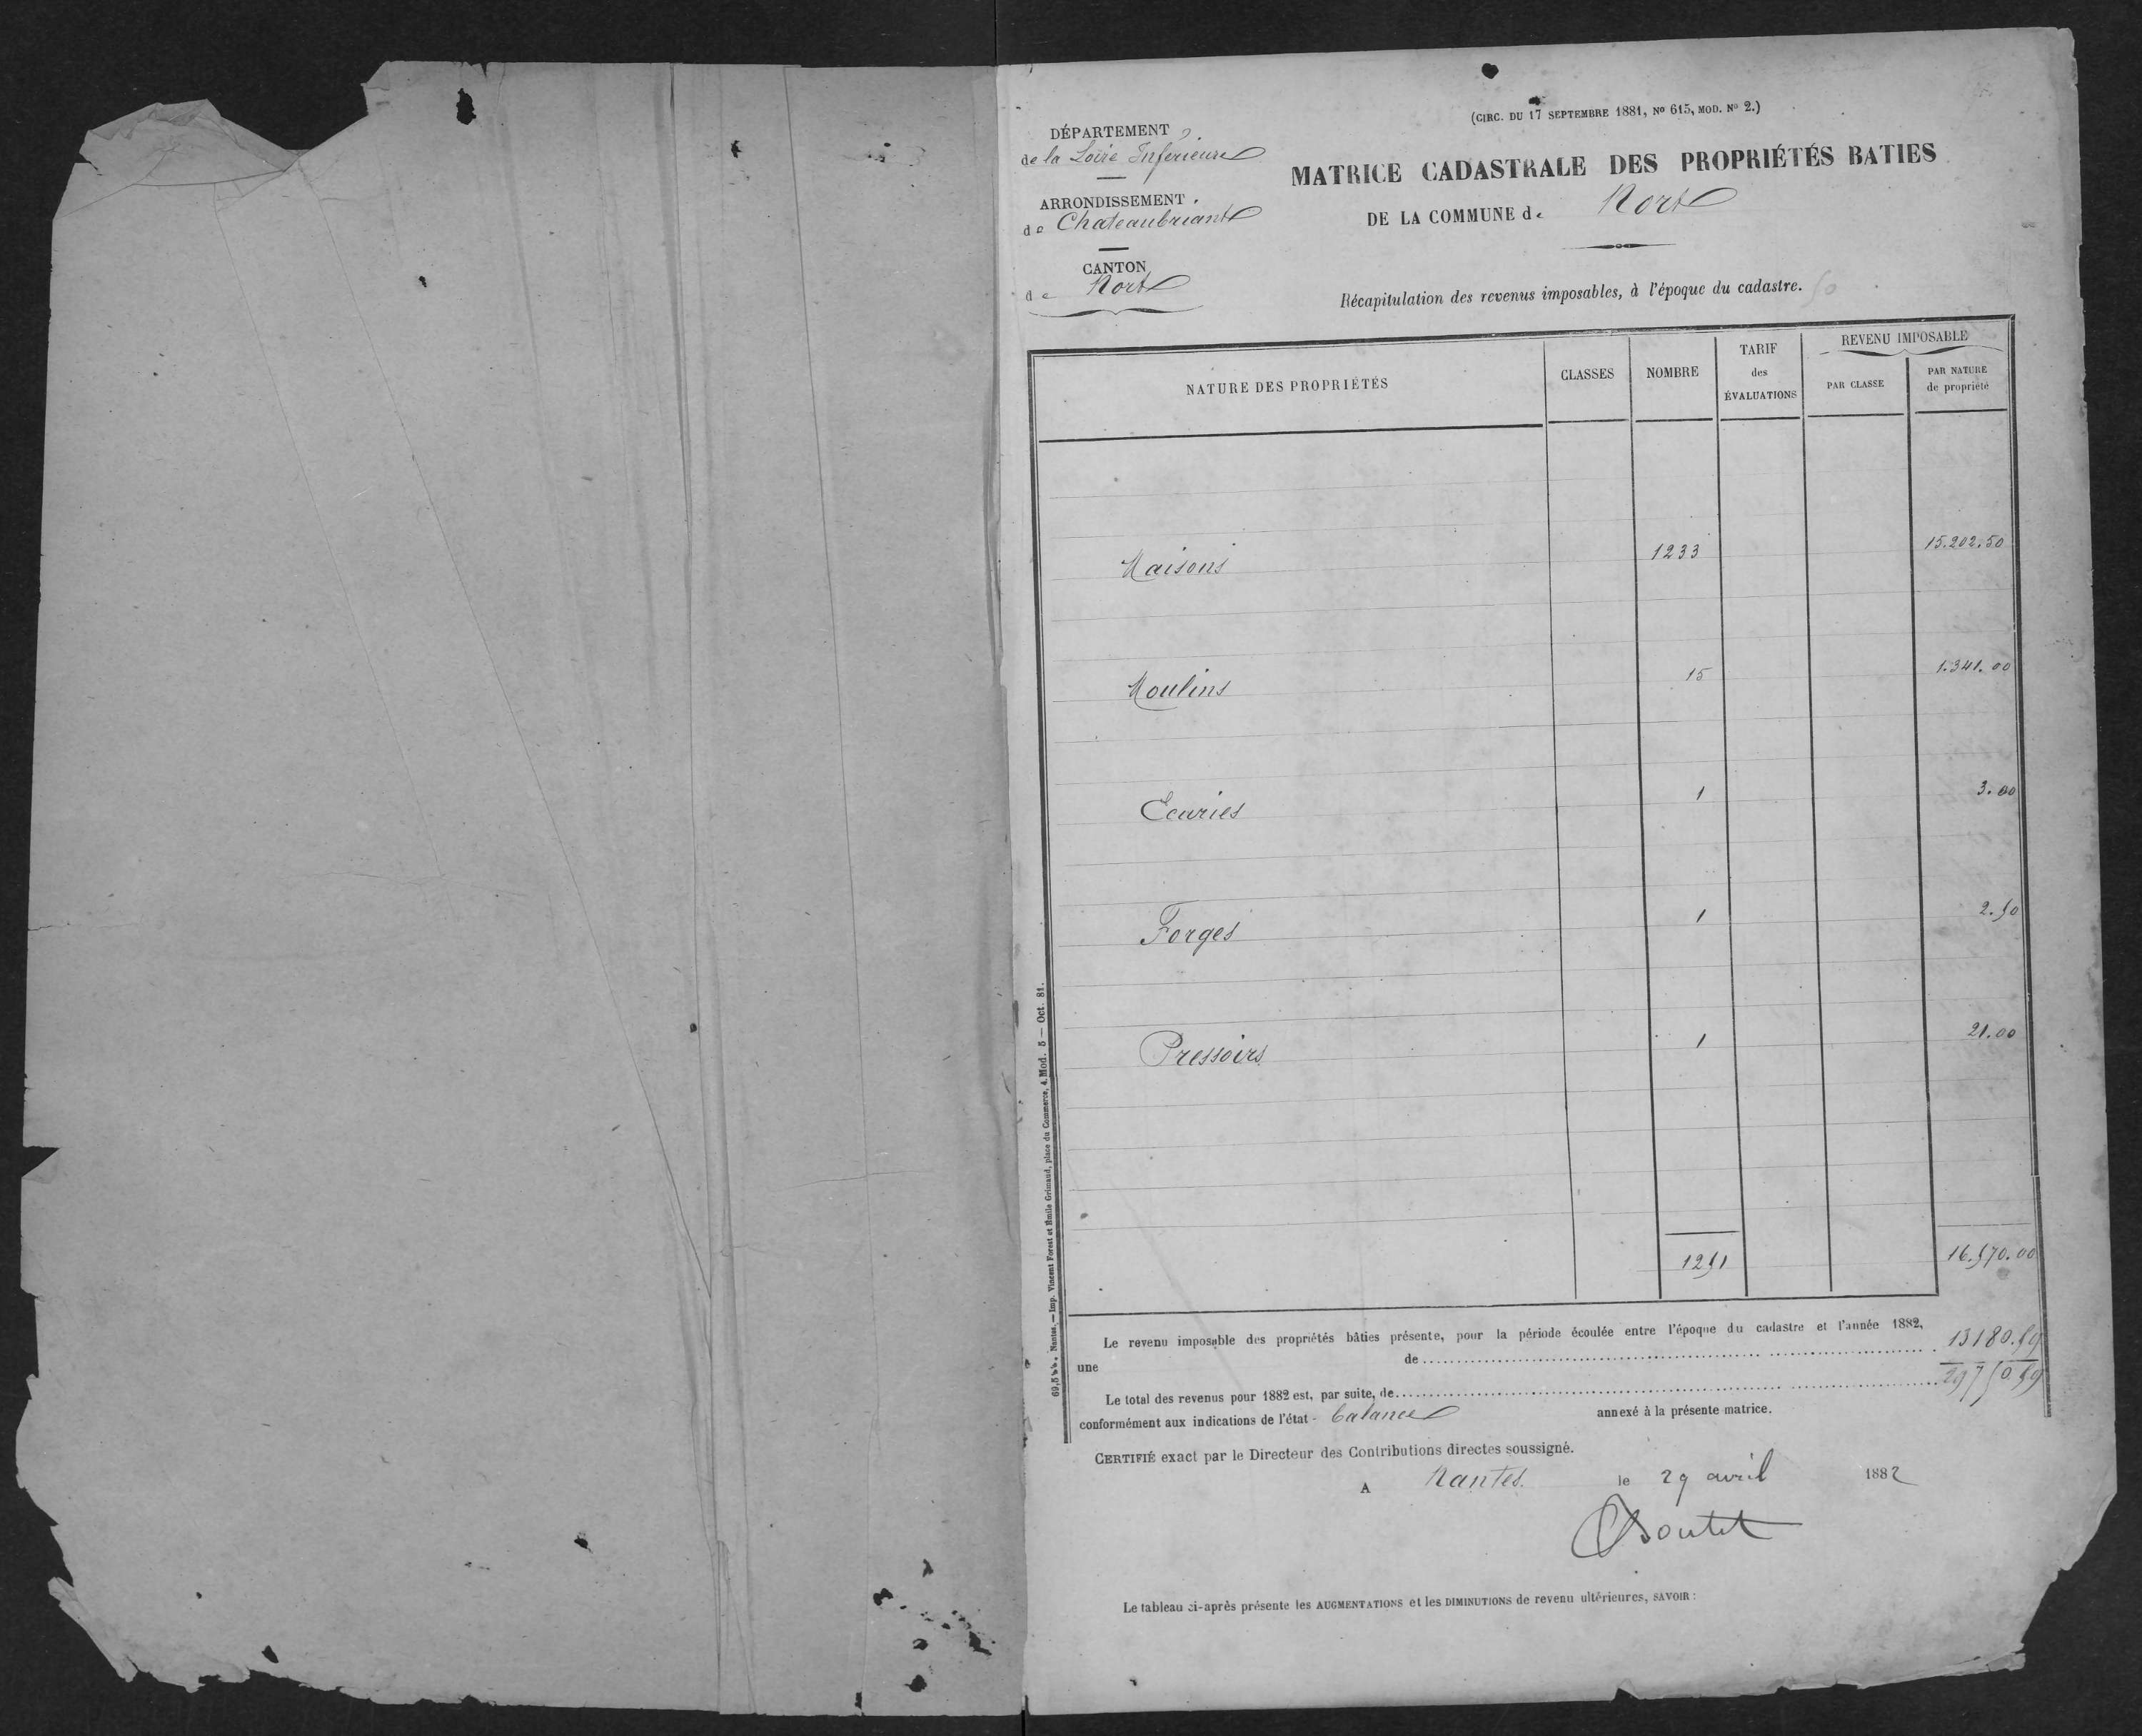 (CIRC. DU 17 SEPTEMBRE 1881, No 615, MOD. No 2.)
DÉPARTEMENT
de la Loire Inférieure
ARRONDISSEMENT
de Chateaubriant
CANTON
de Nort
MATRICE CADASTRALE DES PROPRIÉTÉS BATIES
DE LA COMMUNE de Nort
Récapitulation des revenus imposables, à l'époque du cadastre.
NATURE DES PROPRIÉTÉS CLASSES NOMBRE TARIF des ÉVALUATIONS REVENU IMPOSABLE PAR CLASSE PAR NATURE de propriété
Maisons 1233 15.202.50
Moulins 15 1.341.00
Ecuries 1 3.00
Forges 1 2.50
Pressoirs 1 21.00
1251 16.570.00
Le revenu imposable des propriétés bâties présente, pour la période écoulée entre l'époque du cadastre et l'année 1882,
une de 13180.59
Le total des revenus pour 1882 est, par suite, de 29750.59
conformément aux indications de l'état balance annexé à la présente matrice.
CERTIFIÉ exact par le Directeur des Contributions directes soussigné.
A Nantes. le 29 avril 1882
Boutet
Le tableau ci-après présente les AUGMENTATIONS et les DIMINUTIONS de revenu ultérieures, SAVOIR :
Nantes. — Imp. Vincent Forest et Emile Grimaud, place du Commerce, 4. Mod. 5 — Oct. 81.